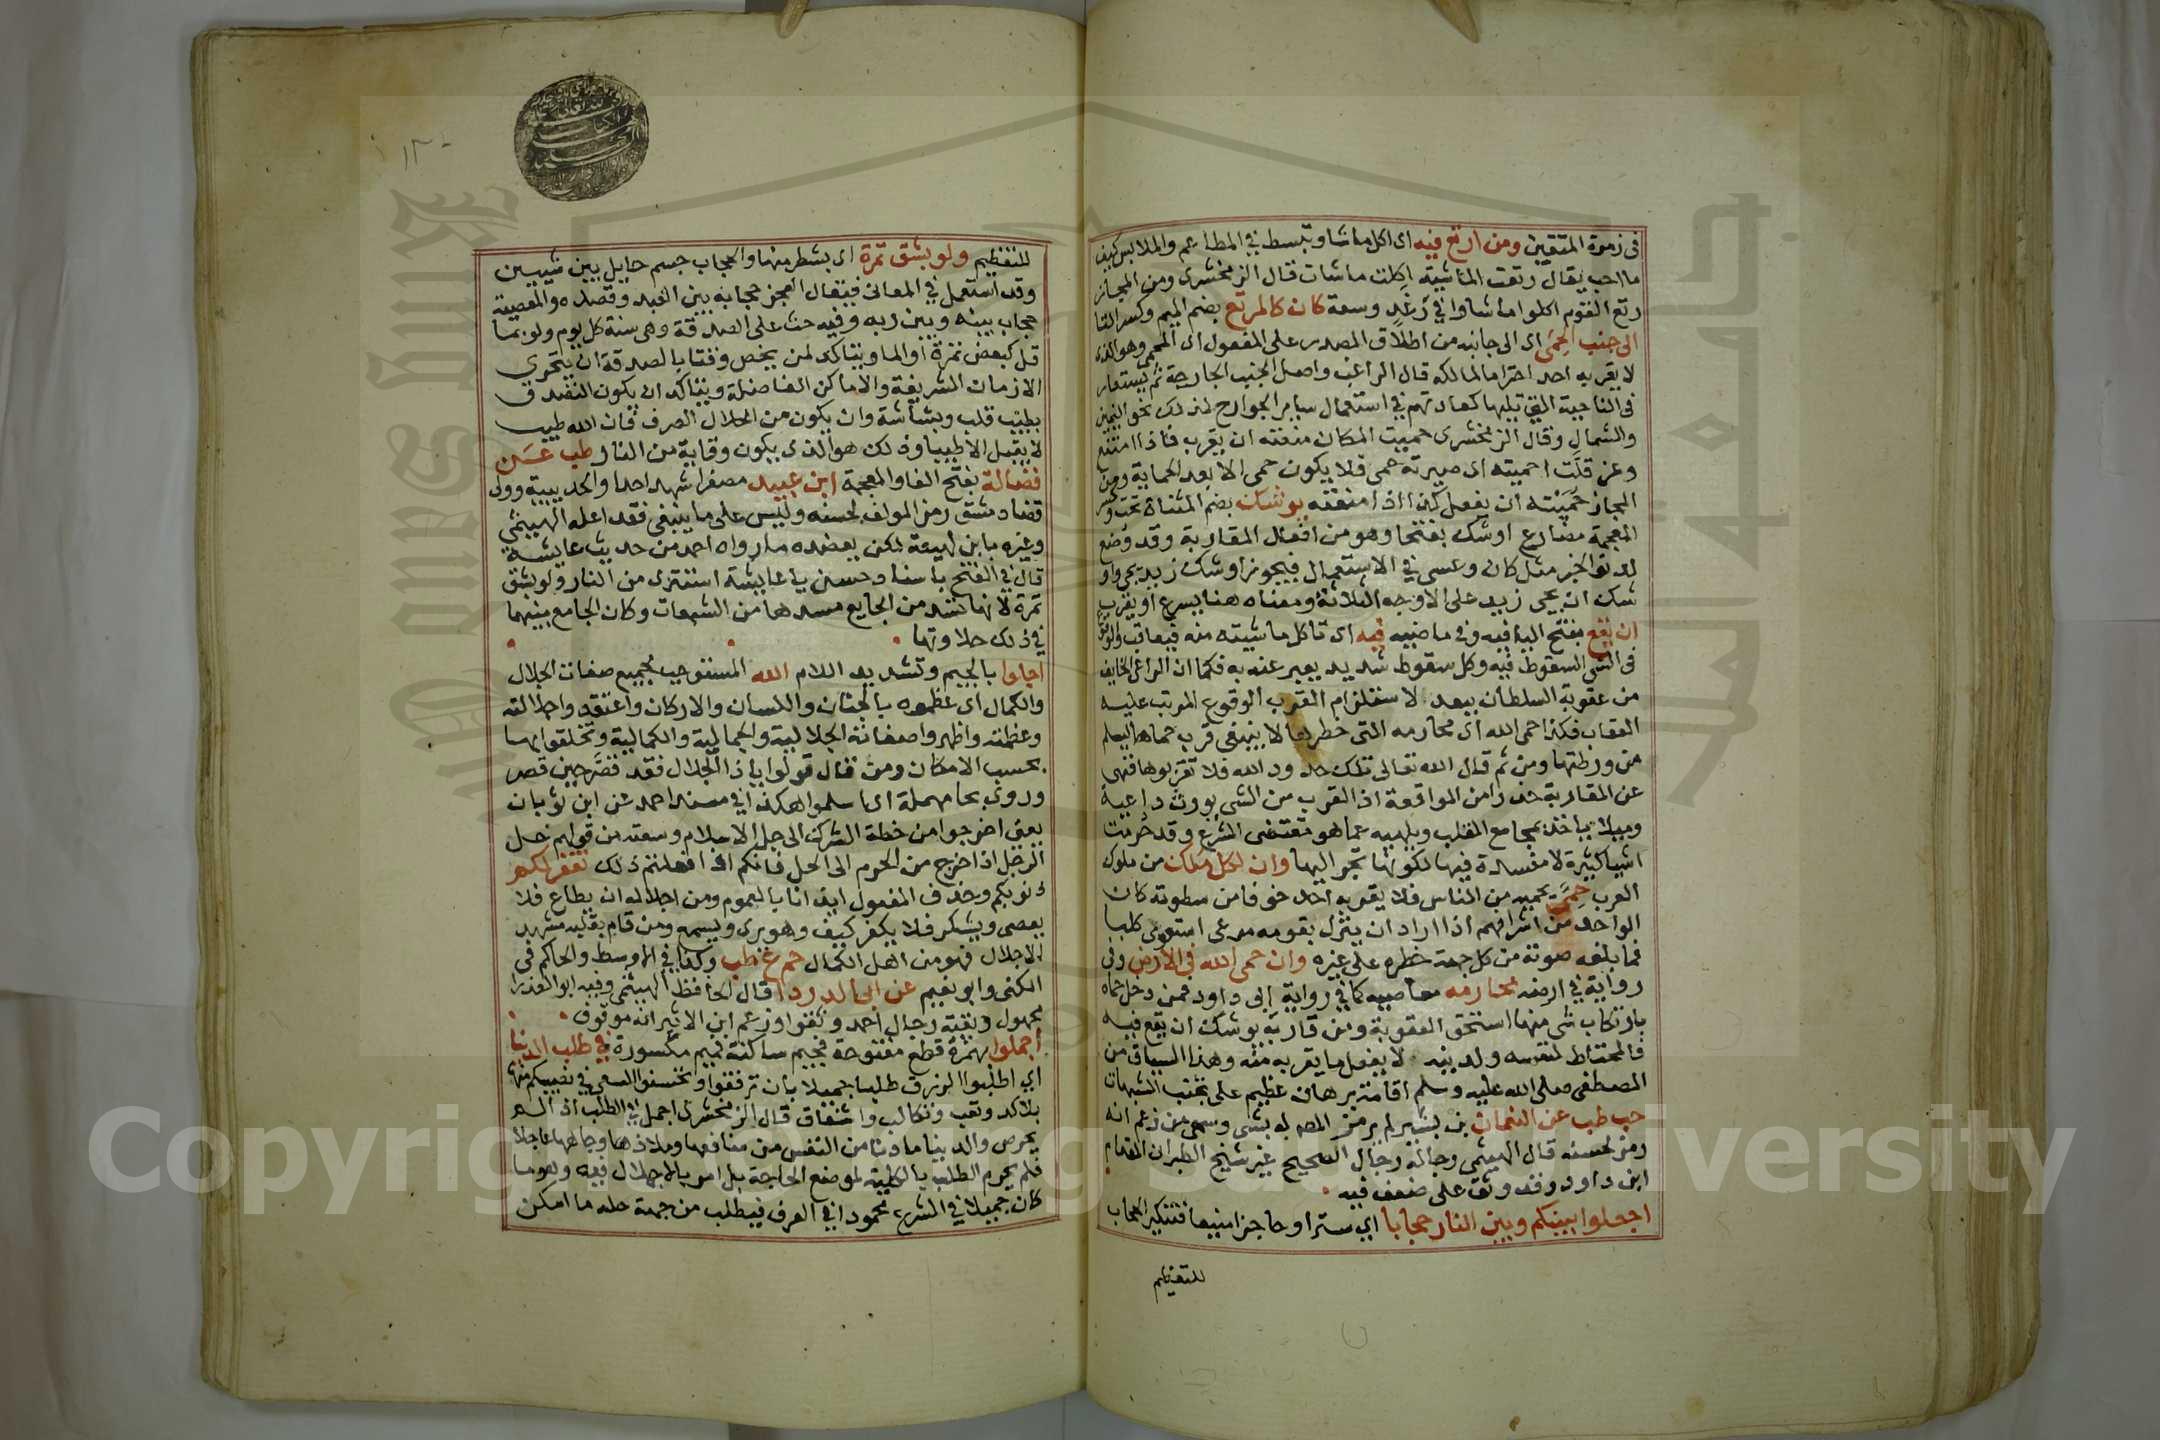 فى زمرة المتقين ومن ارتع فيه اى اكل ماشا وتبسط في المطاعم والملابس كيف
ما احب يقال رتعت الماشية اكلت ماشات قال الزمخشرى ومن المجاز
رتع القوم اكلوا ماشاوا في رغد وسعة كان كالمرتع بضم الميم وكسر التا
الى جنب الحمى اى الى جانبه من اطلاق المصدر على المفعول اى المحمى وهو الذى
لا يقربه احد احتراما لمالكه قال الراغب واصل الجنب الجارحة ثم يستعار
فى الناحية التى تليها كعادتهم في استعمال ساير الجوارح لذلك نحو اليمين
والشمال وقال الزمخشرى حميت المكان منعته ان يقرب فاذا امتنع
وعز قلت احميته اى صيرته حمى فلا يكون حمى الا بعد الحماية ومن
المجاز حميته ان يفعل كذا اذا منعته يوشك بضم المثناة تحت وكسر
المعجمة مضارع اوشك بفتحها وهو من افعال المقاربة وقد وضع
لدنو الخبر مثل كان وعسى في الاستعمال فيجوز اوشك زيد يجى واو
شك ان يجى زيد على الاوجه الثلاثة ومعناه هنا يسرع او يقرب
ان يقع بفتح اليا فيه وفى ماضيه فيه اى تاكل ماشيته منه فيعاقب والوقوع
فى الشى السقوط فيه وكل سقوط شديد يعبر عنه به فكما ان الراعى الخايف
من عقوبة السلطان يبعد لاستلزام القرب الوقوع المرتب عليه
العقاب فكذا حمى الله اى محارمه التى حظرها لا ينبغى قرب حماها ليسلم
من ورطتها ومن ثم قال الله تعالى تلك حدود الله فلا تقربوها فنهى
عن المقاربة حذرا من المواقعة اذ القرب من الشى يورث داعية
وميلا ياخذ بمجامع القلب ويلهيه عما هو مقتضى الشرع وقد حرمت
اشيا كثيرة لا مفسدة فيها لكونها تجر اليها وان لكل ملك من ملوك
العرب حمى يحميه من الناس فلا يقربه احد خوفا من سطوته كان
الواحد من اشرافهم اذا اراد ان ينزل بقومه مرعى استعوى كلبا
فما بلغه صوته من كل جهة حظره على غيره وان حمى الله فى الارض وفى
رواية في ارضه محارمه معاصيه كما في رواية ابى داود فمن دخل حماه
بارتكاب شى منها استحق العقوبة ومن قاربه يوشك ان يقع فيه
فالمحتاط لنفسه ولدينه لا يفعل ما يقربه منه وهذا السياق من
المصطفى صلى الله عليه وسلم اقامة برهان عظيم على تجنب الشبهات
حب طب عن النعمان بن بشير لم يرمز المص له بشى وسهى من زعم انه
رمز لحسنه قال الهيثمى رجاله رجال الصحيح غير شيخ الطبرانى المقدام
ابن داود وقد وثق على ضعف فيه
اجعلوا بينكم وبين النار حجابا اي سترا او حاجزا منيعا فتنكير الحجاب
للتعظيم
١٣٠
للتعظيم ولو بشق تمرة اى بشطر منها والحجاب جسم حايل بين شيين
وقد استعمل في المعانى فيقال العجز حجاب بين العبد وقصده والمعصية
حجاب بينه وبين ربه وفيه حث على الصدقة وهى سنة كل يوم ولو بما
قل كبعض تمرة او الما ويتاكد لمن يخص وقتا بالصدقة ان يتحرى
الازمان الشريفة والاماكن الفاضلة ويتاكد ان يكون التصدق
بطيب قلب وبشاشة وان يكون من الحلال الصرف فان الله طيب
لا يقبل الا طيبا وذلك هو الذى يكون وقاية من النار طب عن
فضالة بفتح الفا والمعجمة ابن عبيد مصغرا شهد احدا والحديبية وولى
قضا دمشق رمز المولف لحسنه وليس على ما ينبغى فقد اعله الهيثمى
وغيره بابن لهيعة لكن يعضده ما رواه احمد من حديث عايشة
قال في الفتح باسناد حسن يا عايشة استترى من النار ولو بشق
تمرة لانها تسد من الجايع مسدها من الشبعان وكان الجامع بينهما
في ذلك حلاوتها
اجلوا بالجيم وتشديد اللام الله المستوجب لجميع صفات الجلال
والكمال اى عظموه بالجنان واللسان والاركان واعتقدوا جلالته
وعظمته واظهروا صفاته الجلالية والجمالية والكمالية وتخلقوا بها
بحسب الامكان ومن قال قولوا يا ذا الجلال فقد قصر حين قصر
وروى بحا مهملة اى اسلموا هكذا في مسند احمد عن ابن ثوبان
يعنى اخرجوا من خطة الشرك الى حل الاسلام وسعته من قولهم حل
الرجل اذا خرج من الحرم الى الحل فانكم اذا فعلتم ذلك يغفر لكم
ذنوبكم وحذف المفعول ايذانا بالعموم ومن اجلاله ان يطاع فلا
يعصى ويشكر فلا يكفر كيف وهو يرى ويسمع ومن قام بقلبه مشهد
الاجلال فهو من اهل الكمال حم ع طب وكذا في الاوسط والحاكم فى
الكنى وابو نعيم عن ابى الدرداء قال الحافظ الهيثمى وفيه ابو العذرا
مجهول وبقية رجال احمد وثقوا وزعم ابن الاثير انه موقوف
أجملوا بهمزة قطع مفتوحة فجيم ساكنة فميم مكسورة في طلب الدنيا
اي اطلبوا الرزق طلبا جميلا بان ترفقوا وتحسنوا السعى في نصيبكم منها
بلا كد وتعب وتكالب واشفاق قال الزمخشرى اجمل في الطلب اذا لم
يحرص والدنيا ما دنا من النفس من منافعها وملاذها وجاهها عاجلا
فلم يحرم الطلب بالكلية لموضع الحاجة بل امر بالاجمال فيه وهو ما
كان جميلا في الشرع محمودا في العرف فيطلب من جهة حله ما امكن
King Saud University
Copyright © King Saud University